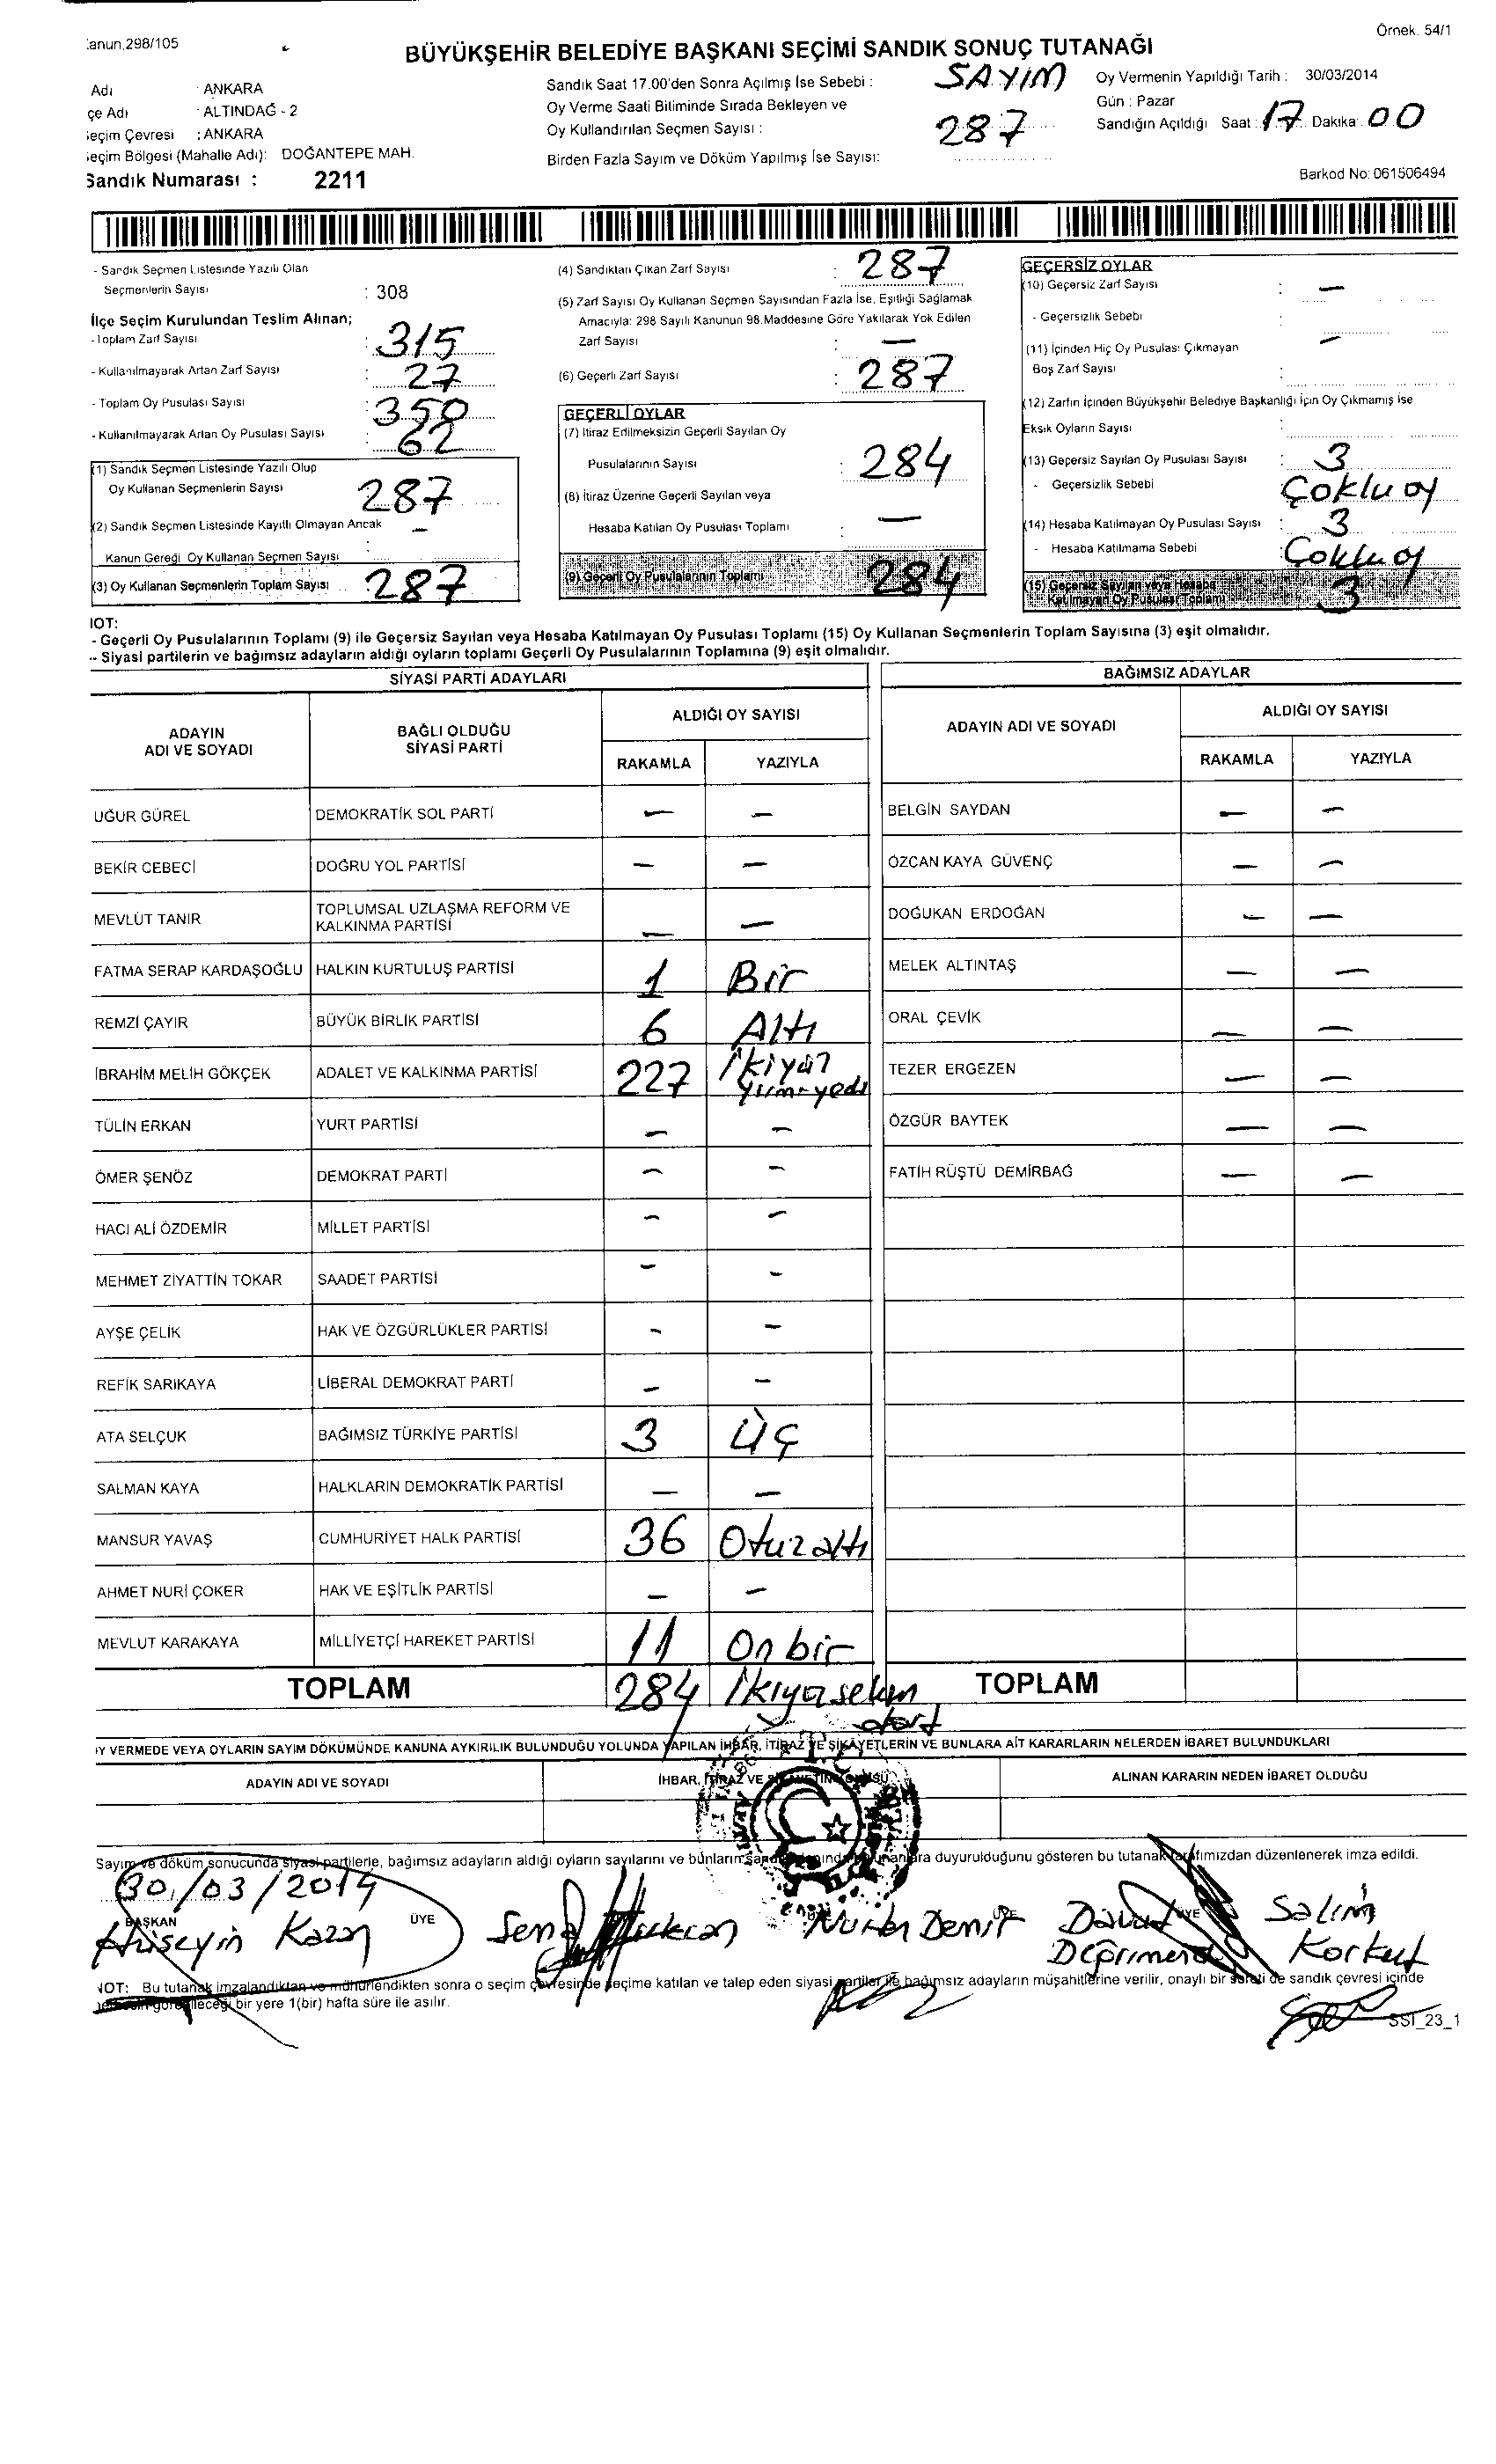 Örnek. 54/1
anun.298/105
BÜYÜKŞEHİR BELEDİYE BAŞKANI SEÇİMİ SANDIK SONUÇ TUTANAĞI
Adı : ANKARA
çe Adı : ALTINDAĞ - 2
eçim Çevresi : ANKARA
eçim Bölgesi (Mahalle Adı): DOĞANTEPE MAH.
Sandık Numarası : 2211
Sandık Saat 17.00'den Sonra Açılmış İse Sebebi : SAYIM
Oy Verme Saati Bitiminde Sırada Bekleyen ve
Oy Kullandırılan Seçmen Sayısı : 287
Birden Fazla Sayım ve Döküm Yapılmış İse Sayısı:
Oy Vermenin Yapıldığı Tarih : 30/03/2014
Gün : Pazar
Sandığın Açıldığı Saat : 17 Dakika: 00
Barkod No: 061506494
- Sandık Seçmen Listesinde Yazılı Olan
Seçmenlerin Sayısı : 308
İlçe Seçim Kurulundan Teslim Alınan;
- Toplam Zarf Sayısı : 315
- Kullanılmayarak Artan Zarf Sayısı : 27
- Toplam Oy Pusulası Sayısı : 350
- Kullanılmayarak Artan Oy Pusulası Sayısı : 62
(1) Sandık Seçmen Listesinde Yazılı Olup
Oy Kullanan Seçmenlerin Sayısı 287
(2) Sandık Seçmen Listesinde Kayıtlı Olmayan Ancak
Kanun Gereği Oy Kullanan Seçmen Sayısı : —
(3) Oy Kullanan Seçmenlerin Toplam Sayısı 287
(4) Sandıktan Çıkan Zarf Sayısı : 287
(5) Zarf Sayısı Oy Kullanan Seçmen Sayısından Fazla İse, Eşitliği Sağlamak
Amacıyla: 298 Sayılı Kanunun 98.Maddesine Göre Yakılarak Yok Edilen
Zarf Sayısı : —
(6) Geçerli Zarf Sayısı : 287
GEÇERLİ OYLAR
(7) İtiraz Edilmeksizin Geçerli Sayılan Oy
Pusulalarının Sayısı : 284
(8) İtiraz Üzerine Geçerli Sayılan veya
Hesaba Katılan Oy Pusulası Toplamı : —
(9) Geçerli Oy Pusulalarının Toplamı 284
GEÇERSİZ OYLAR
(10) Geçersiz Zarf Sayısı : —
- Geçersizlik Sebebi :
(11) İçinden Hiç Oy Pusulası Çıkmayan —
Boş Zarf Sayısı :
(12) Zarfın İçinden Büyükşehir Belediye Başkanlığı İçin Oy Çıkmamış İse
Eksik Oyların Sayısı :
(13) Geçersiz Sayılan Oy Pusulası Sayısı : 3
- Geçersizlik Sebebi Çoklu oy
(14) Hesaba Katılmayan Oy Pusulası Sayısı : 3
- Hesaba Katılmama Sebebi Çoklu oy
(15) Geçersiz Sayılan veya Hesaba
Katılmayan Oy Pusulası Toplamı 3
NOT:
- Geçerli Oy Pusulalarının Toplamı (9) ile Geçersiz Sayılan veya Hesaba Katılmayan Oy Pusulası Toplamı (15) Oy Kullanan Seçmenlerin Toplam Sayısına (3) eşit olmalıdır.
- Siyasi partilerin ve bağımsız adayların aldığı oyların toplamı Geçerli Oy Pusulalarının Toplamına (9) eşit olmalıdır.
SİYASİ PARTİ ADAYLARI
ADAYIN ADI VE SOYADI
BAĞLI OLDUĞU SİYASİ PARTİ
ALDIĞI OY SAYISI
RAKAMLA YAZIYLA
UĞUR GÜREL DEMOKRATİK SOL PARTİ — —
BEKİR CEBECİ DOĞRU YOL PARTİSİ — —
MEVLÜT TANIR TOPLUMSAL UZLAŞMA REFORM VE KALKINMA PARTİSİ — —
FATMA SERAP KARDAŞOĞLU HALKIN KURTULUŞ PARTİSİ 1 Bir
REMZİ ÇAYIR BÜYÜK BİRLİK PARTİSİ 6 Altı
İBRAHİM MELİH GÖKÇEK ADALET VE KALKINMA PARTİSİ 227 İkiyüz yirmiyedi
TÜLİN ERKAN YURT PARTİSİ — —
ÖMER ŞENÖZ DEMOKRAT PARTİ — —
HACI ALİ ÖZDEMİR MİLLET PARTİSİ — —
MEHMET ZİYATTİN TOKAR SAADET PARTİSİ — —
AYŞE ÇELİK HAK VE ÖZGÜRLÜKLER PARTİSİ — —
REFİK SARIKAYA LİBERAL DEMOKRAT PARTİ — —
ATA SELÇUK BAĞIMSIZ TÜRKİYE PARTİSİ 3 üç
SALMAN KAYA HALKLARIN DEMOKRATİK PARTİSİ — —
MANSUR YAVAŞ CUMHURİYET HALK PARTİSİ 36 Otuzaltı
AHMET NURİ ÇOKER HAK VE EŞİTLİK PARTİSİ — —
MEVLUT KARAKAYA MİLLİYETÇİ HAREKET PARTİSİ 11 Onbir
TOPLAM 284
BAĞIMSIZ ADAYLAR
ADAYIN ADI VE SOYADI
ALDIĞI OY SAYISI
RAKAMLA YAZIYLA
BELGİN SAYDAN — —
ÖZCAN KAYA GÜVENÇ — —
DOĞUKAN ERDOĞAN — —
MELEK ALTINTAŞ — —
ORAL ÇEVİK — —
TEZER ERGEZEN — —
ÖZGÜR BAYTEK — —
FATİH RÜŞTÜ DEMİRBAĞ — —
TOPLAM
OY VERMEDE VEYA OYLARIN SAYIM DÖKÜMÜNDE KANUNA AYKIRILIK BULUNDUĞU YOLUNDA YAPILAN İHBAR, İTİRAZ VE ŞİKAYETLERİN VE BUNLARA AİT KARARLARIN NELERDEN İBARET BULUNDUKLARI
ADAYIN ADI VE SOYADI
İHBAR, İTİRAZ VE
ALINAN KARARIN NEDEN İBARET OLDUĞU
Sayım ve döküm sonucunda siyasi partilerle, bağımsız adayların aldığı oyların sayılarını ve bunların duyurulduğunu gösteren bu tutanak tarafımızdan düzenlenerek imza edildi.
30/03/2014
BAŞKAN ÜYE ÜYE ÜYE
Hüseyin Kazan
Sema
Nurten Demir
Davut
Salim
Korkut
NOT: Bu tutanak imzalandıktan ve mühürlendikten sonra o seçim çevresinde seçime katılan ve talep eden siyasi partiler ile bağımsız adayların müşahitlerine verilir, onaylı bir sureti de sandık çevresi içinde
bir yere 1(bir) hafta süre ile asılır.
SST_23_1